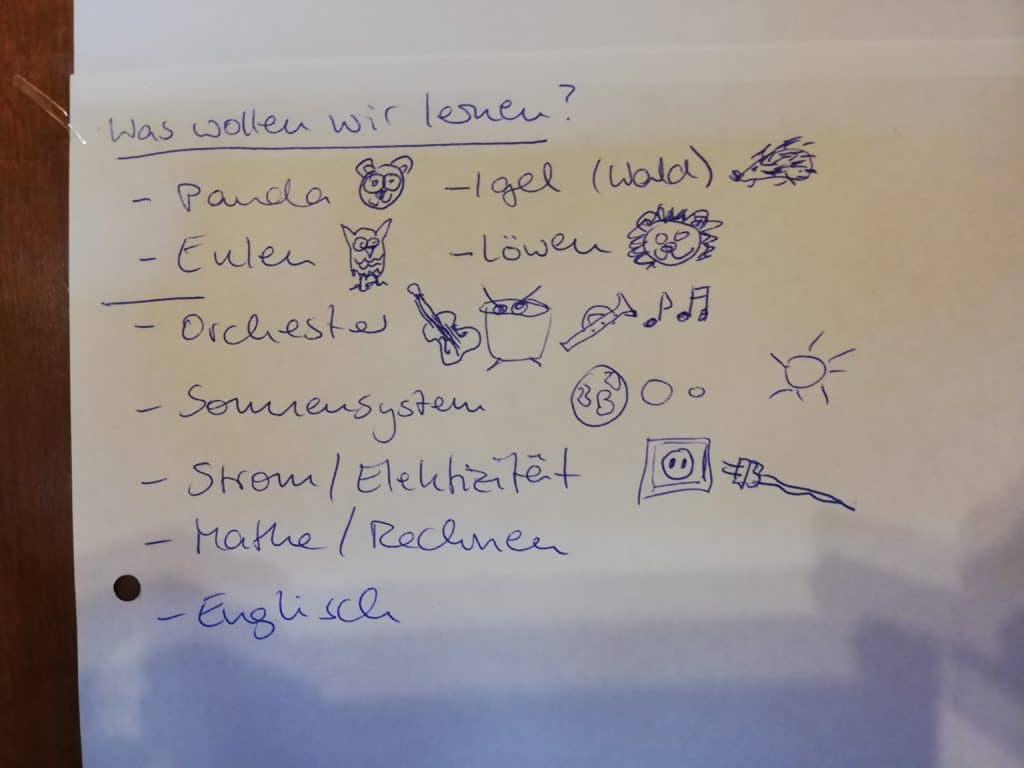 Was wollen wir lernen?
- Panda - Igel (Wald)
- Eulen - Löwen
- Orchester
- Sonnensystem
- Strom/Elektizität
- Mathe/Rechnen
- Englisch